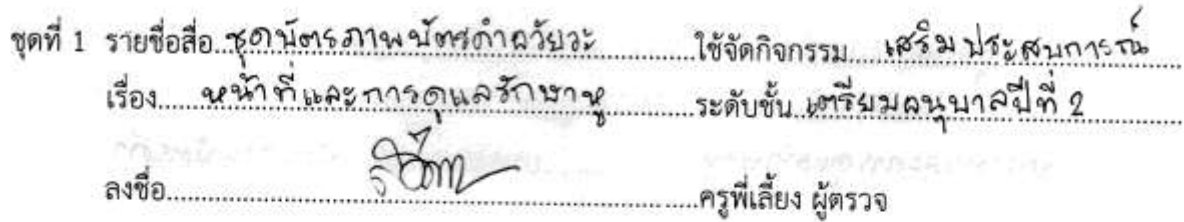 ชุดที่ 1 รายชื่อสื่อ ชุดบัตรภาพบัตรคำอวัยวะ ใช้จัดกิจกรรม เสริมประสบการณ์
เรื่อง หน้าที่และการดูแลรักษาหู ระดับชั้น เตรียมอนุบาลปีที่ 2
ลงชื่อ ครูพี่เลี้ยง ผู้ตรวจ